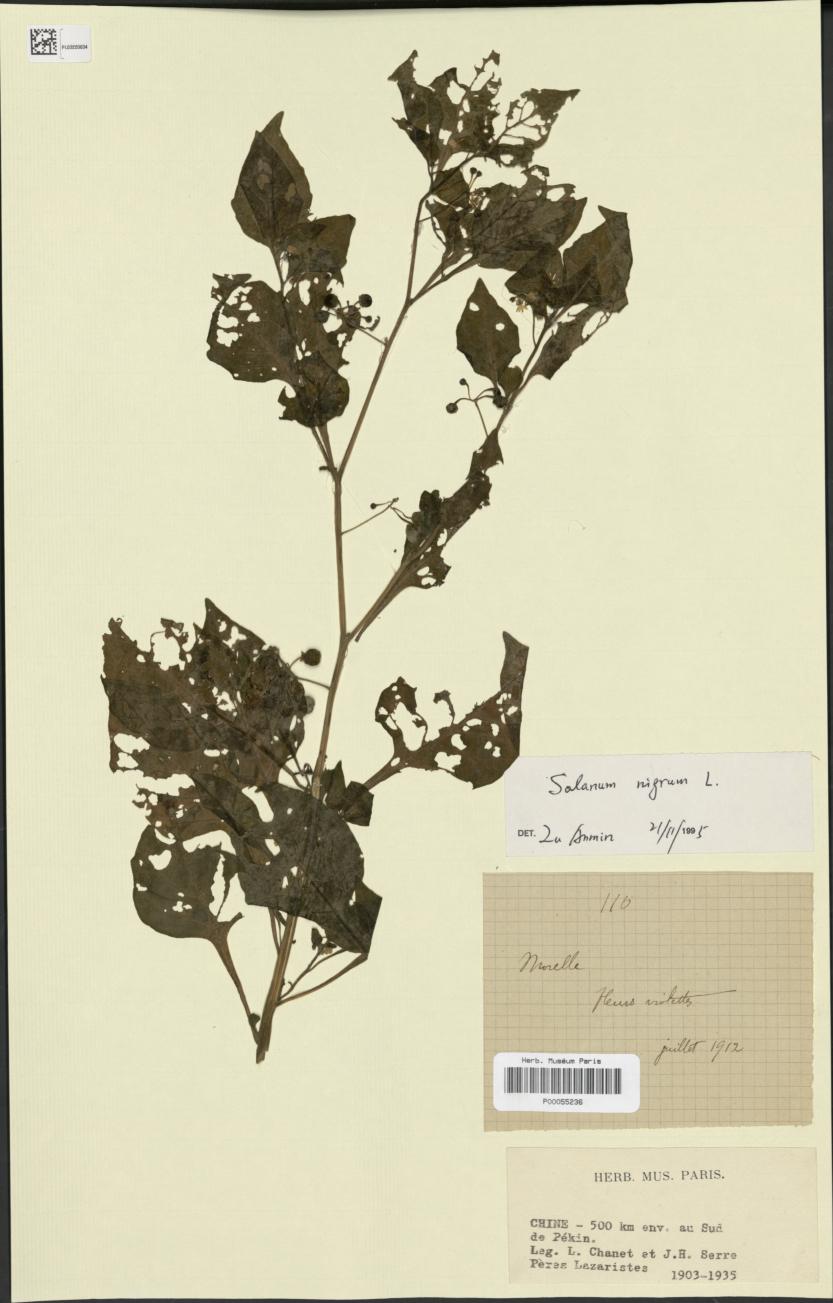 Solanum nigrum L.
DET. Lu Anmin 21/11/1995
110
Morelle
fleurs violettes
juillet 1912
Herb. Muséum Paris
P00055236
HERB. MUS. PARIS.
CHINE - 500 km env. au Sud
de Pékin.
Leg. L. Chanet et J.H. Serre
Pères Lazaristes 1903-1935